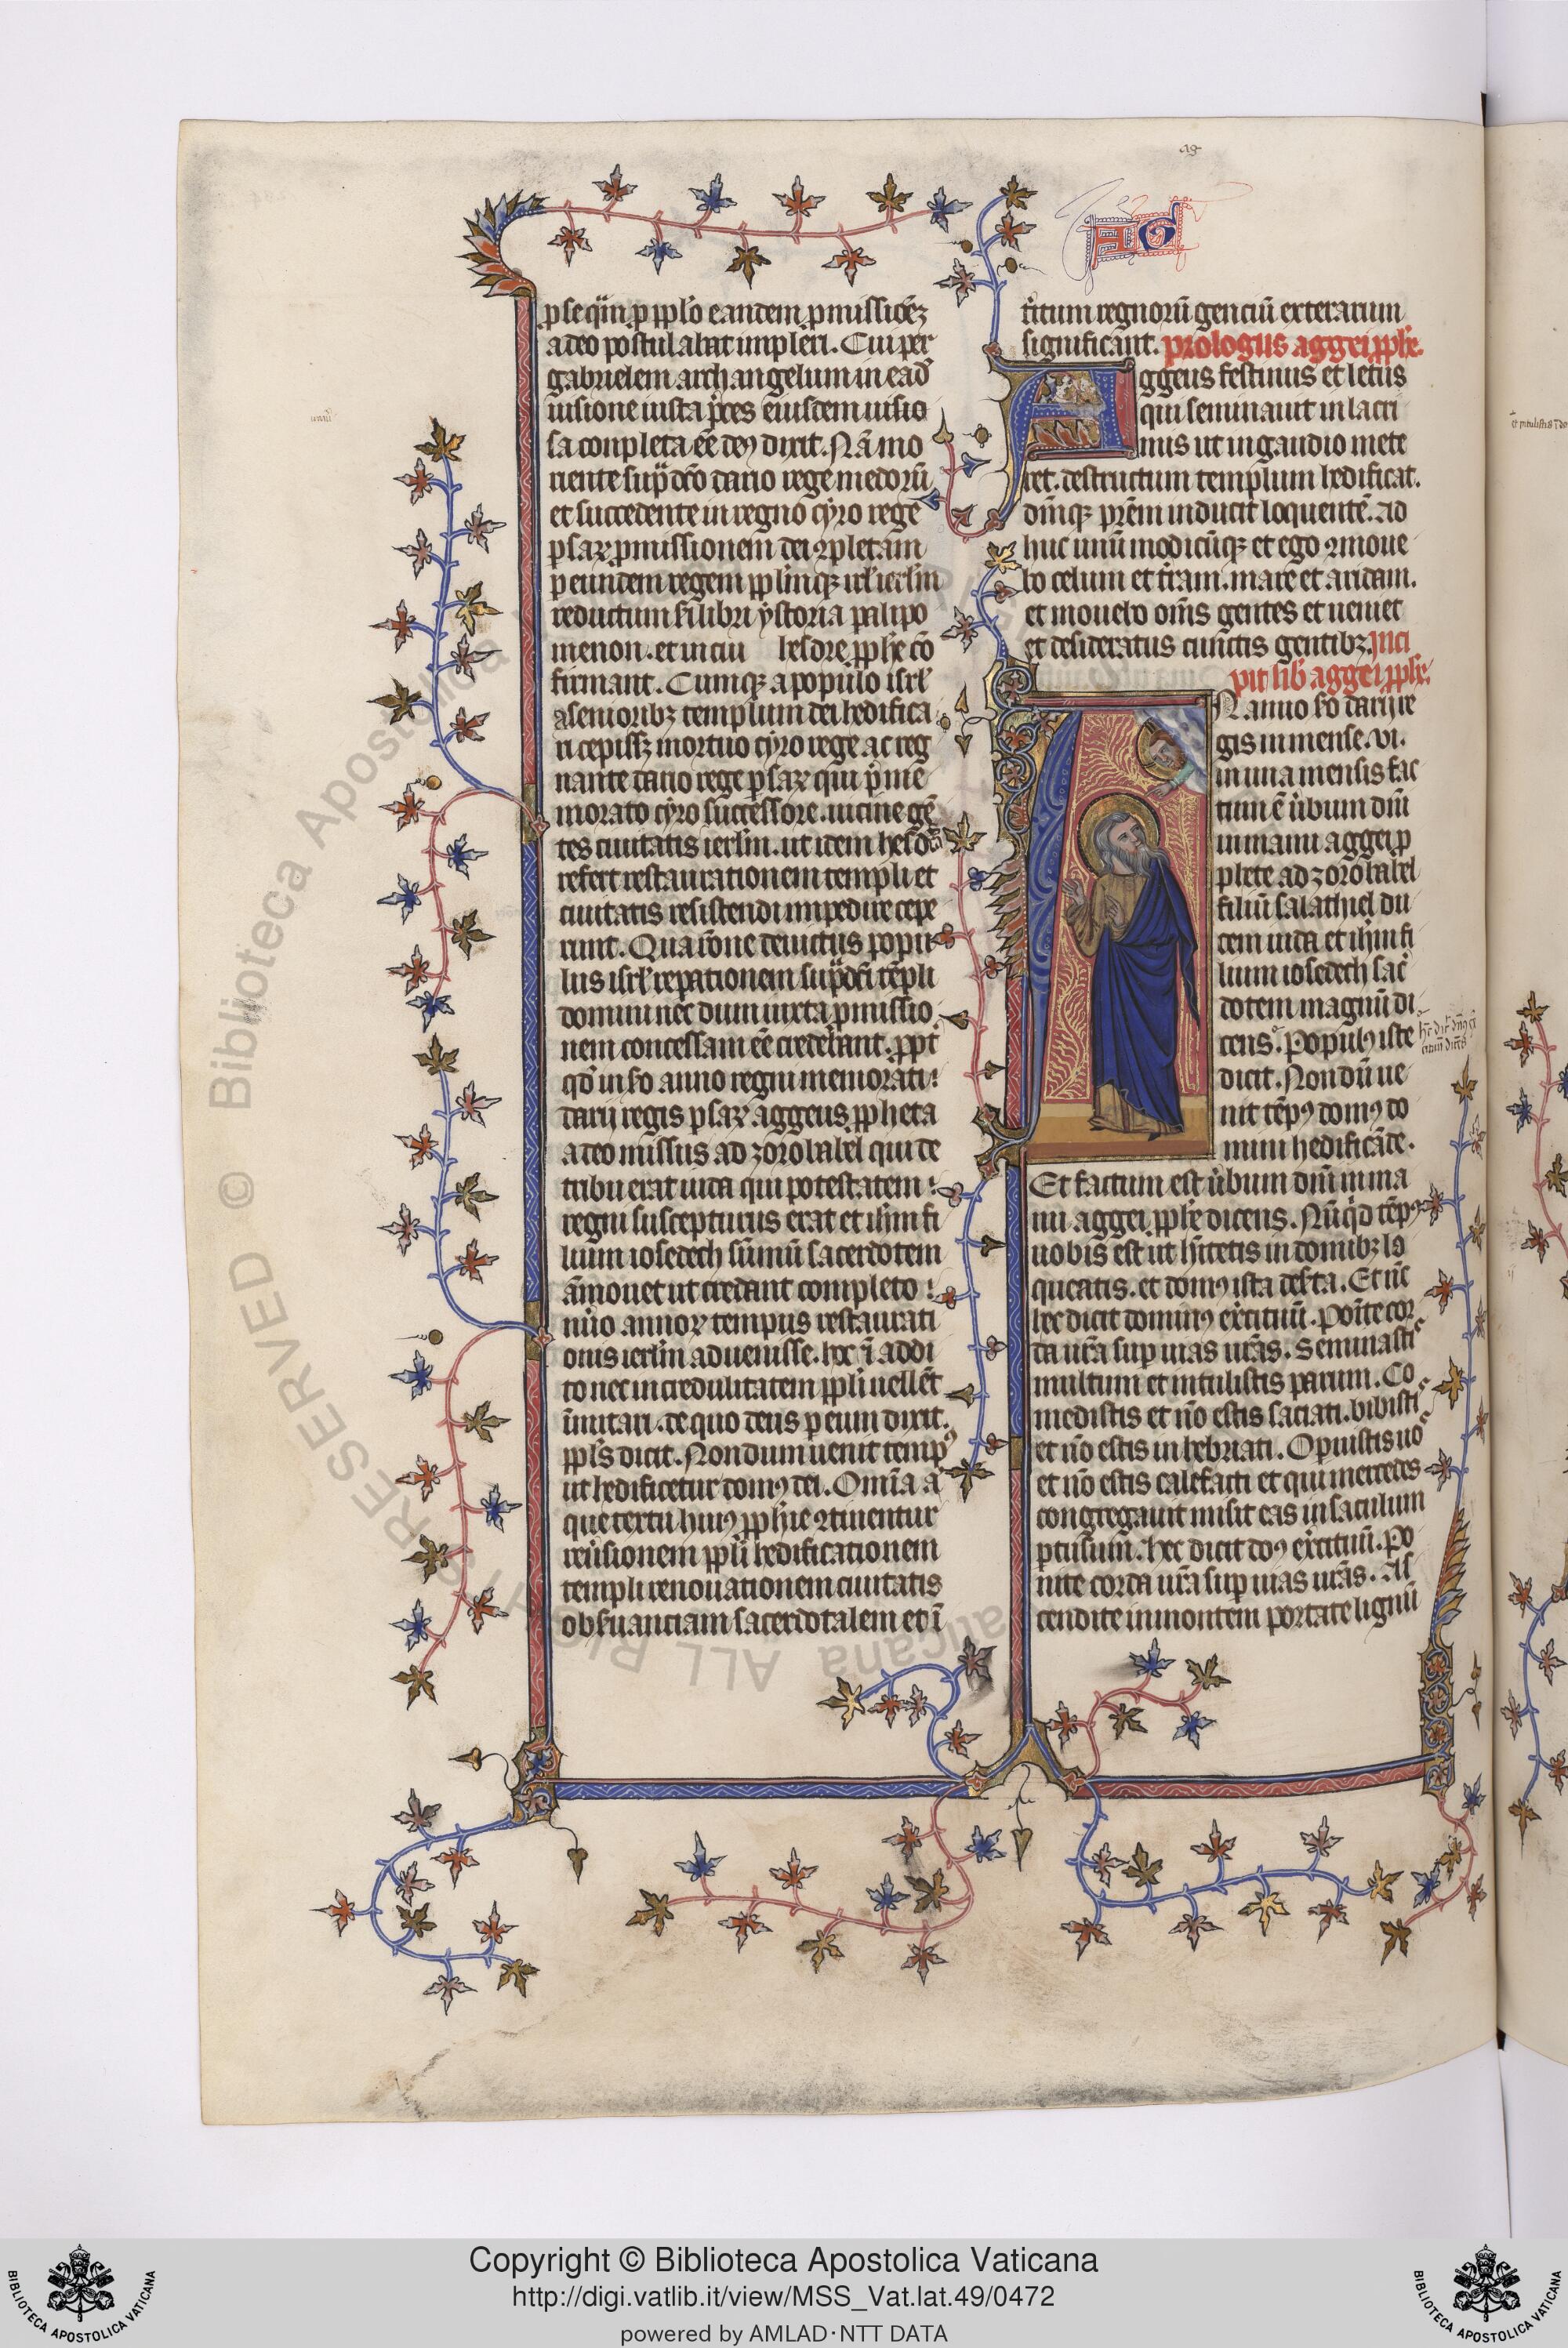 ag
AG
p̱se qͥm p̱ pplo eandem p̱missiōēꝫ
a deo postulabat impleri. Cui per
gabrielem archangelum in eadē
uisione iusta p̄ces eiusdem uisio
sa conpleta eē deꝰ dixit. Nā mo
riente sup̄dc̄o dario rege medoꝝ
et succedente in regno cyro rege
p̱saꝝ p̱missionem dei ꝯpletam
p̱ eundem regem pplmqꝫ isrl' ierlm
reductum
menon. et in ciu hesdre pphe cō
firmant. Cumqꝫ a populo isrl'
a senioribꝫ templum dei hedifica
ri cepissꝫ mortuo cyro rege ac reg
nante dario rege p̱saꝝ qui p̄ me
morato cyro successore. uicine gē
tes ciuitatis ierlm. ut idem hesd̄s
refert restaurationem templi et
ciuitatis resistendi impedire cepe
runt. Qua rōne deuictus popu
lus isrl' rep̱ationem sup̄dc̄i tēpli
domini nec dum iuxta p̱missio
nem concessam eē credebant. ppt̄
qd' in sō anno regni memorati
darij regis p̱saꝝ aggeus ppheta
a deo missus ad zorobabel qui de
tribu erat iuda qui potestatem
regni suscepturus erat et ihm fi
lium iosedech sūmū sacerdotem
āmouet ut credant completo
nūo annoꝝ tempus restaurati
onis ierlm aduenisse. hoc ī addi
to ne
īmitari. de quo deus p̱ eum dixit.
ppls dicit. Nondum uenit tempꝰ
ut hedificetur domꝰ dei. Omīa a
que textu huiꝰ pphie ꝯtinentur
reūsionem ppli hedificationem
templi renouationem ciuitatis
obs̄uanciam sacerdotalem et ī
t̄itum regnorū genciū exterarum
significant. prologus aggei pphe.
Aggeus festiuus et letus
qui seminauit in lacri
mis ut in gaudio mete
ret. destructum templum hedificat.
dm̄qꝫ pr̄em inducit loquentē. ad
huc unū modicūqꝫ et ego ꝯmoue
bo celum et t̄ram. mare et aridam.
et mouebo om̄s gentes et ueniet
et desideratus cunctis gentibꝫ. Inci
pit lib' aggei pphe.
IN anno sō darij re
gis in mense. vi.
in una mensis fac
tum ē ūbum dm̄i
in manu aggei p̱
phete ad zorobabel
filiū salathiel du
cem iuda et ihm fi
lium iosedech sac̄
dotem magnū di
cens. Populꝰ iste
hec dic̄ dn̄s exītuū dicēs
dicit. Non dū ue
nit tēpꝰ domꝰ do
mini hedificāde.
Et factum est ūbum dm̄i in ma
nu aggei pphe dicens. Nūqͥd tēpꝰ
uobis est ut hītetis in domibꝫ la
queatis. et domꝰ ista defta. Et nūc
hec dicit dominꝰ ex̄cituū. Ponite cor
da ur̄a sup̱ uias ur̄as. Seminastis
multum et intulistis parum. Co
medistis et nō estis saciati. bibistis
et nō estis inhebriati. Operuistis uos
et nō estis calefacti et qui mercedes
congregauit misit eas in saculum
p̱tusum. hec dicit dn̄s ex̄cituū. Po
nite corda ur̄a sup̱ uias ur̄as. As
cendite in montem portate lignū
Copyright © Biblioteca Apostolica Vaticana
http://digi.vatlib.it/view/MSS_Vat.lat.49/0472
powered by AMLAD·NTT DATA
BIBLIOTECA APOSTOLICA VATICANA
BIBLIOTECA APOSTOLICA VATICANA